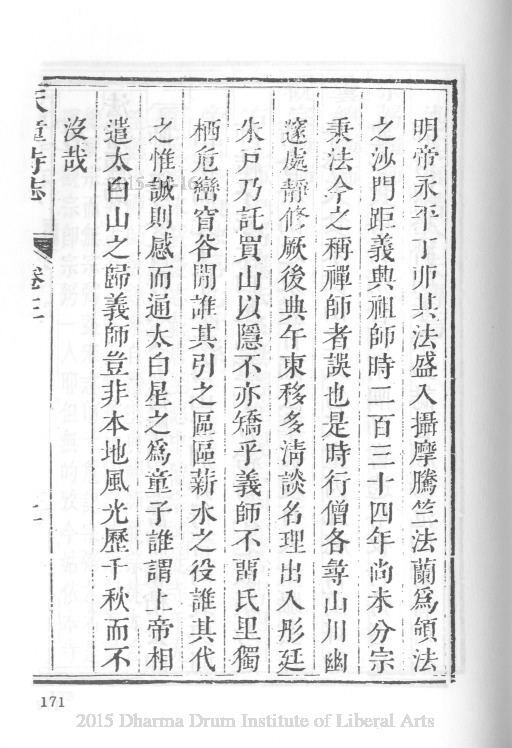 明帝永平丁丱其法盛入攝摩騰竺法蘭爲領法
之沙門距義興祖師時二百三十四年尚未分宗
秉法今之稱禪師者誤也是時行僧各尋山川幽
邃處靜修厥後典午東移多淸談名理出入彤廷
朱戸乃託買山以隱不亦矯乎義師不畱氏里獨
栖危巒窅谷閒誰其引之區區薪水之役誰其代
之惟誠則感而通太白星之爲童子誰謂上帝相
遣太白山之歸義師豈非本地風光歷千秋而不
沒哉
天童寺志
卷三
二
171
2015 Dharma Drum Institute of Liberal Arts